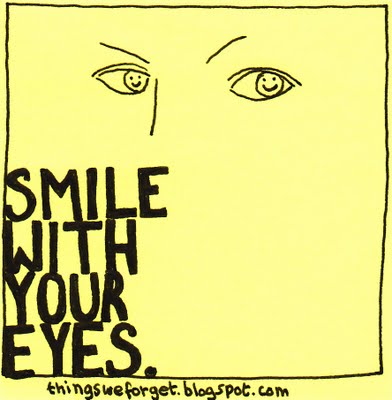 SMILE
WITH
YOUR
EYES.
thingsweforget.blogspot.com